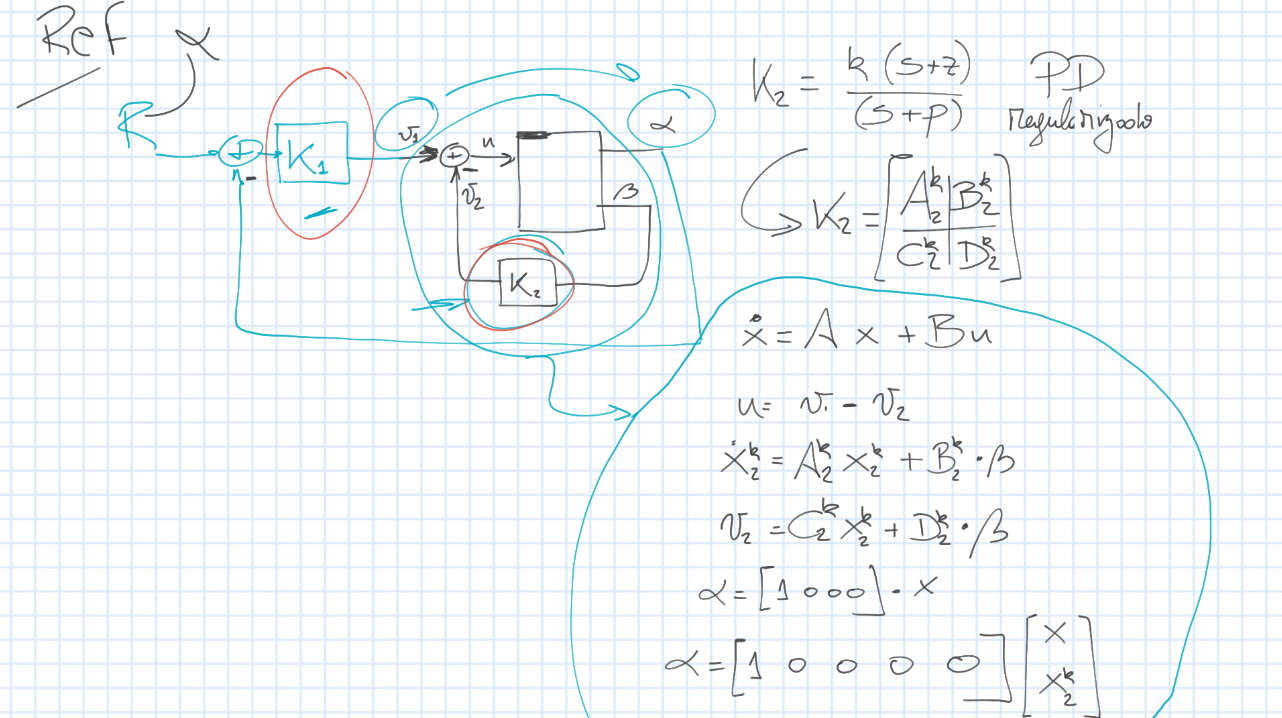 Ref α
R
+
-
K₁
v₁
+
-
u
α
β
v₂
K₂
K₂ = k (s+z) / (s+p) PD
regularizado
K₂ = [A₂ᵏ | B₂ᵏ
C₂ᵏ | D₂ᵏ]
ẋ = A x + Bu
u = v₁ - v₂
ẋ₂ᵏ = A₂ᵏ x₂ᵏ + B₂ᵏ · β
v₂ = C₂ᵏ x₂ᵏ + D₂ᵏ · β
α = [1 0 0 0] · x
α = [1 0 0 0 0] [x
x₂ᵏ]